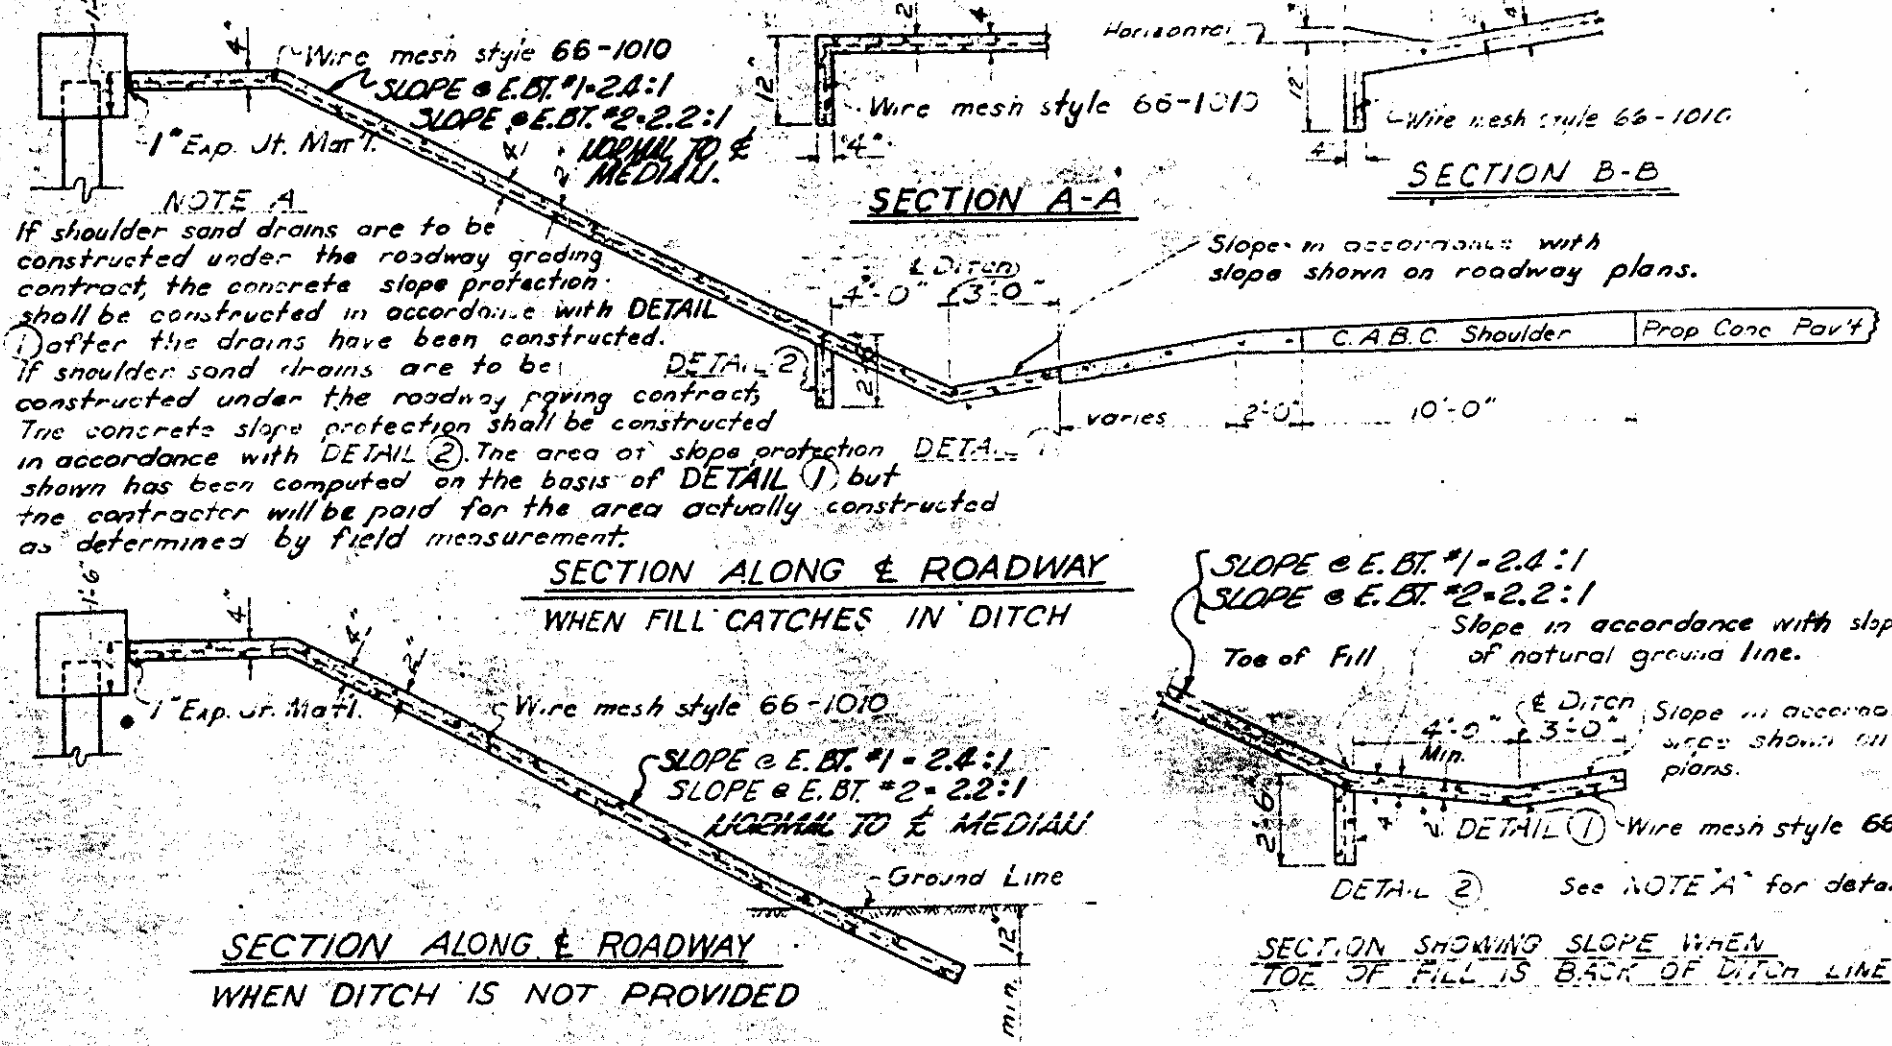 4"
Wire mesh style 66-1010
SLOPE @ E.BT. #1=2.4:1
SLOPE @ E.BT. #2=2.2:1
NORMAL TO ℄
MEDIAN.
1" Exp. Jt. Mat'l.
4"
2"
2
4
12"
Wire mesh style 66-1010
4"
SECTION A-A
Horizontal
12"
Wire mesh style 66-1010
4"
SECTION B-B
NOTE A
If shoulder sand drains are to be
constructed under the roadway grading
contract, the concrete slope protection
shall be constructed in accordance with DETAIL
① after the drains have been constructed.
If shoulder sand drains are to be
constructed under the roadway paving contract,
The concrete slope protection shall be constructed
in accordance with DETAIL ②. The area of slope protection
shown has been computed on the basis of DETAIL ① but
the contractor will be paid for the area actually constructed
as determined by field measurement.
℄ Ditch
4'-0" 3'-0"
Slope in accordance with
slope shown on roadway plans.
C.A.B.C. Shoulder
Prop Conc Pav't
DETAIL 2
2'-6"
varies 2'-0" 10'-0"
DETAIL 1
SECTION ALONG ℄ ROADWAY
WHEN FILL CATCHES IN DITCH
1'-6"
4"
4"
2"
1" Exp. Jt. Mat'l.
Wire mesh style 66-1010
SLOPE @ E.BT. #1 = 2.4:1
SLOPE @ E.BT. #2 = 2.2:1
NORMAL TO ℄ MEDIAN
Ground Line
12"
min.
SECTION ALONG ℄ ROADWAY
WHEN DITCH IS NOT PROVIDED
SLOPE @ E.BT. #1 = 2.4:1
SLOPE @ E.BT. #2 = 2.2:1
Slope in accordance with slop
of natural ground line.
Toe of Fill
℄ Ditch
4'-0" 3'-0"
Min.
Slope in accorda
shown on
plans.
2'-6"
4"
2"
DETAIL ①
Wire mesh style 66
DETAIL ②
See NOTE "A" for deta
SECTION SHOWING SLOPE WHEN
TOE OF FILL IS BACK OF DITCH LINE